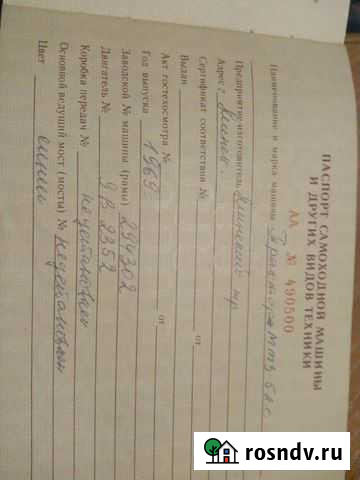 ПАСПОРТ САМОХОДНОЙ МАШИНЫ
И ДРУГИХ ВИДОВ ТЕХНИКИ
АА № 490500
Наименование и марка машины Трактор МТЗ
Предприятие-изготовитель Минский
Адрес г. Минск
Сертификат соответствия № от
Выдан
Акт гостехосмотра № от
Год выпуска 1969
Заводской № машины (рамы) 294302
Двигатель № 9В2352
Коробка передач № не установлен
Основной ведущий мост (мосты) № не установлен
Цвет синий
rosndv.ru